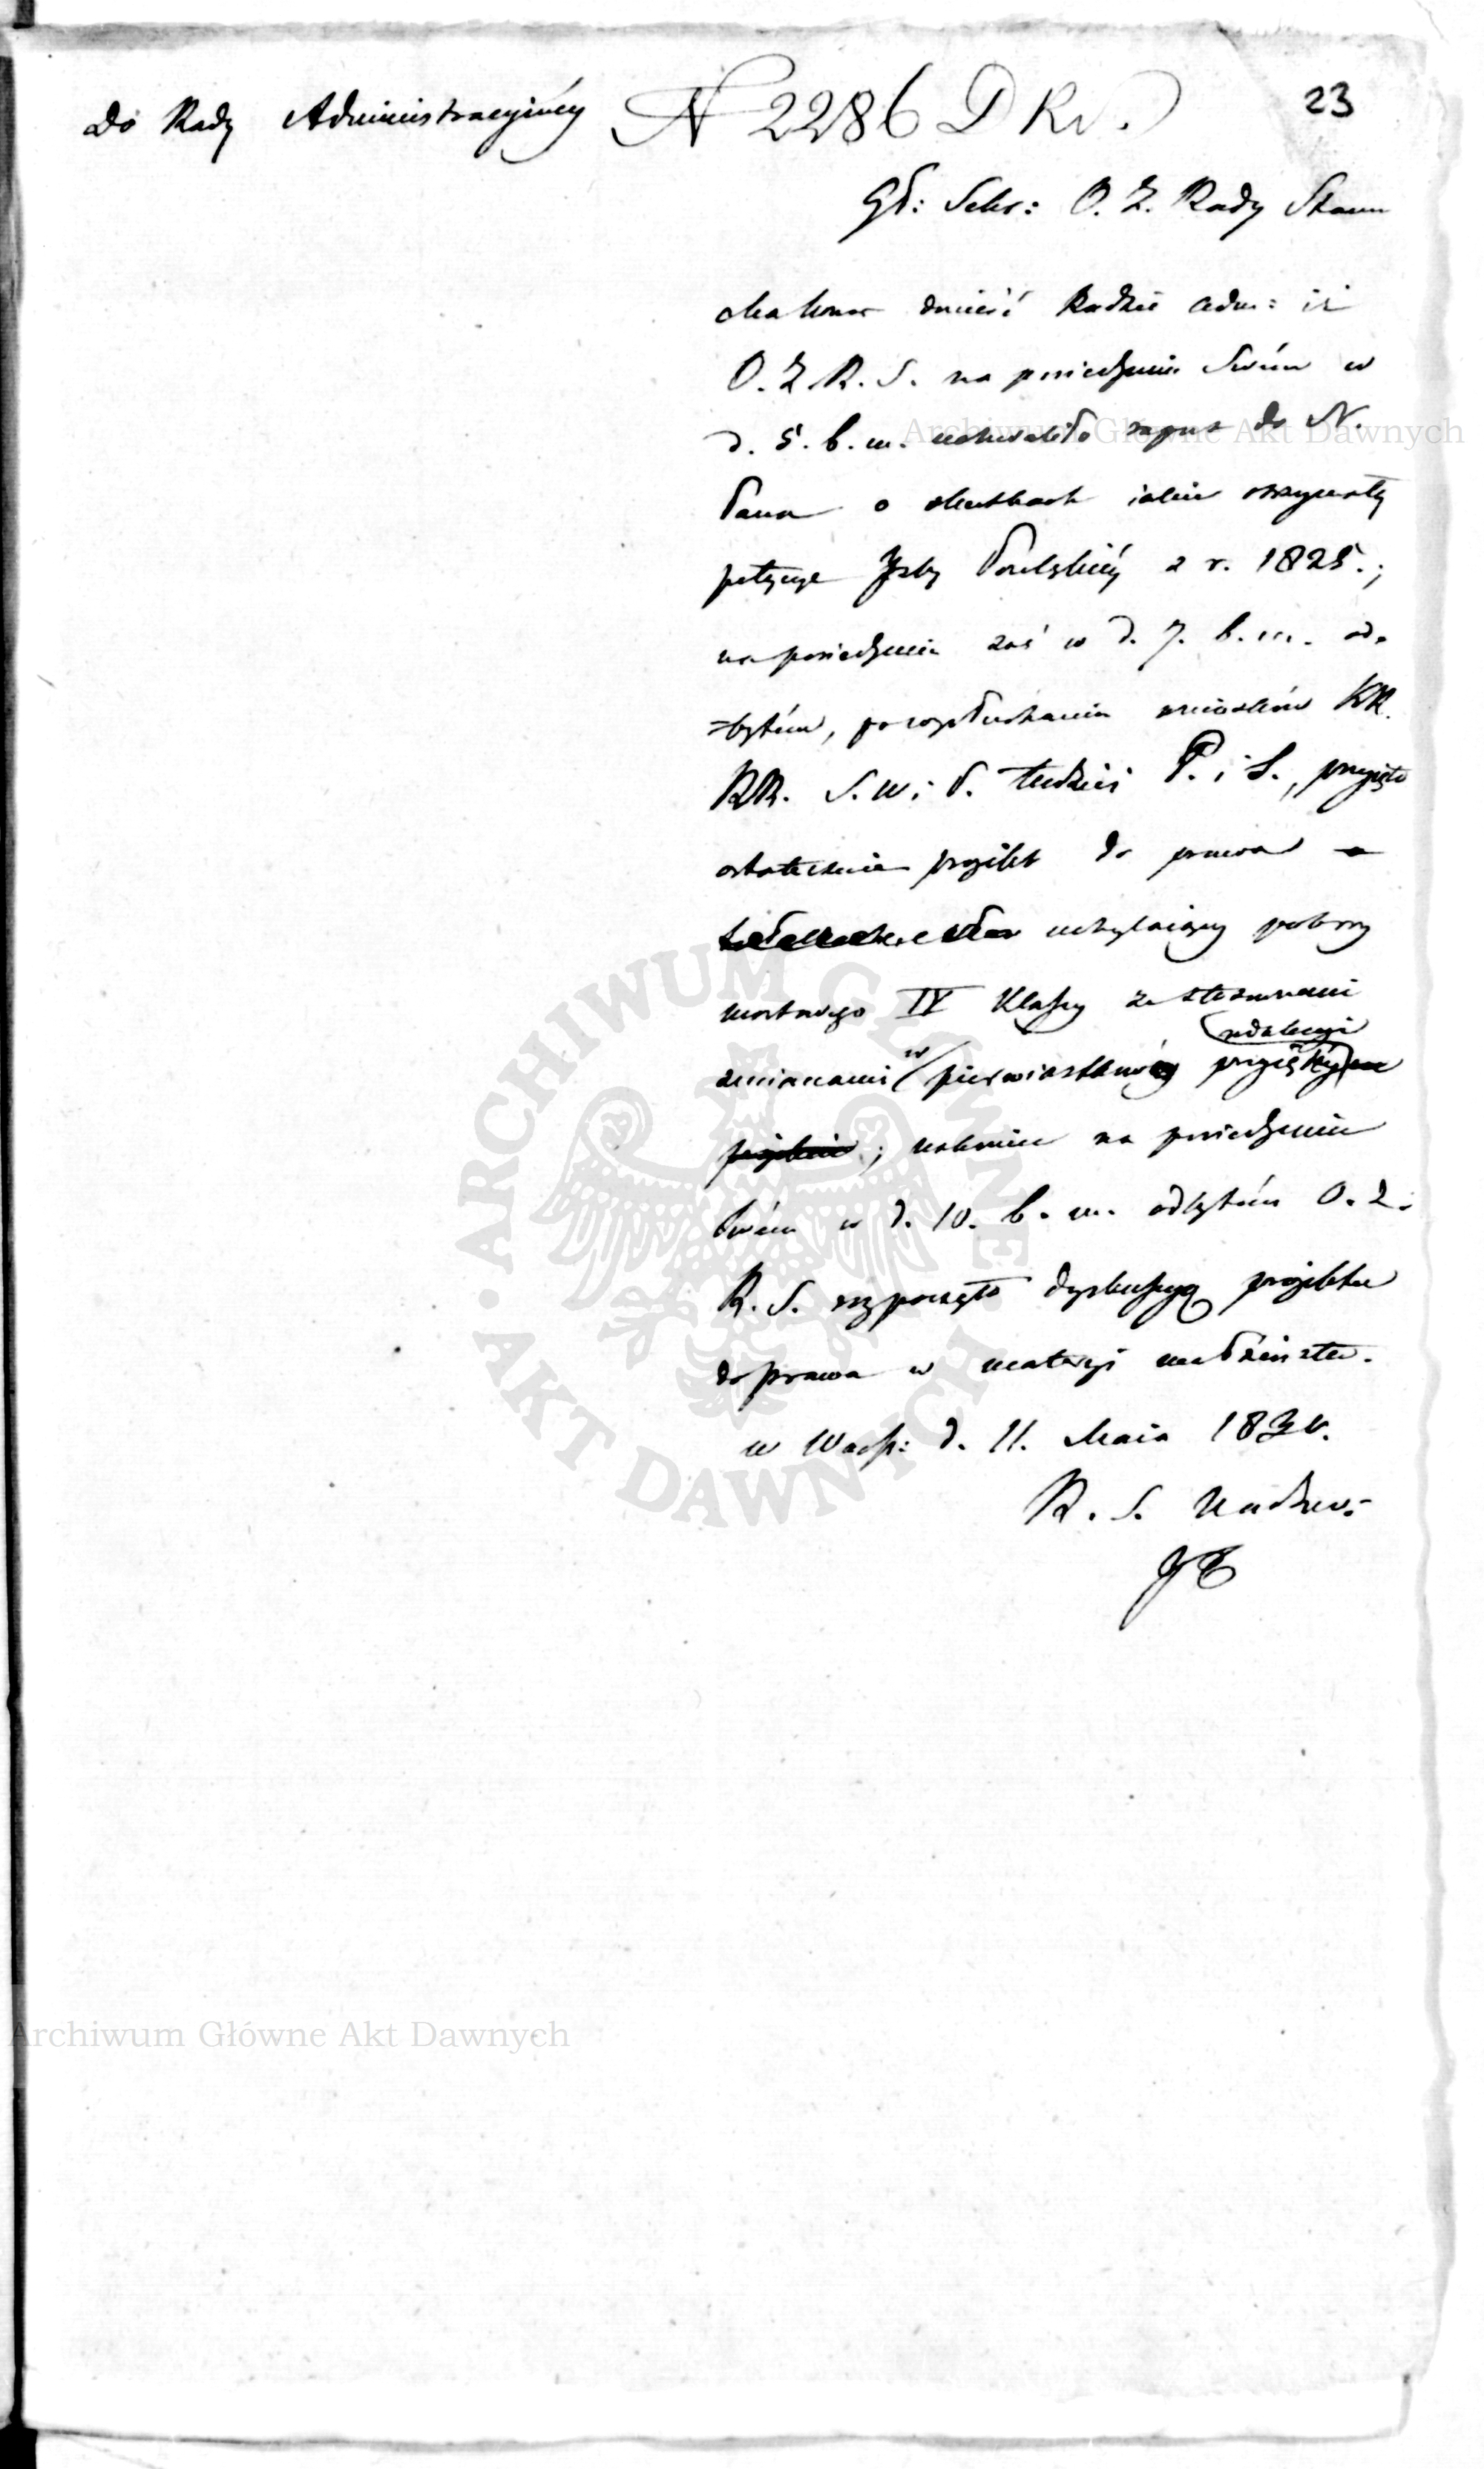 Do Rady Administracyinéy N 2286 D Kr.
23
Gł: Sekr: O. Z. Rady Stanu
ma honor donieść Radzie Adm: iż
O. Z. R. S. na posiedzeniu swém w
d. 5. b. m. uchwaliło raport do N.
Pana o skutkach iakie otrzymały
petycye Izby Poselskiéy z r. 1825.;
na posiedzeniu zaś w d. 7. b. m. od=
=bytém, po wysłuchaniu wniosków KK.
RR. S. W. i P. tudzież P. i S., przyięto
ostatecznie projekt do prawa
uchylaiący pobory
mostowego IV Klassy ze stosownemi
zmianami w pierwiastkowéy redakcyi przyiętéy
; nakoniec na posiedzeniu
swém w d. 10. b. m. odbytém O. Z.
R. S. rozpoczęło dyskussyą projektu
do prawa w materyi małżeństw.
w Warsz: d. 11. Maia 1830.
R. S. Nadzw:
Archiwum Główne Akt Dawnych
ARCHIWUM GŁÓWNE AKT DAWNYCH
Archiwum Główne Akt Dawnych